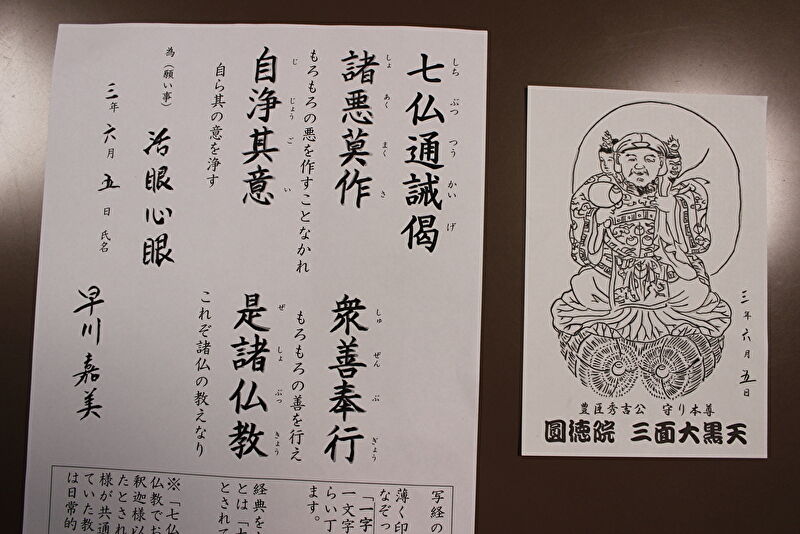 七仏通誡偈
しち ぶつ つう かい げ
諸悪莫作
しょ あく まく さ
もろもろの悪を作すことなかれ
衆善奉行
しゅ ぜん ぶ ぎょう
もろもろの善を行え
自浄其意
じ じょう ご い
自ら其の意を浄す
是諸仏教
ぜ しょ ぶっ きょう
これぞ諸仏の教えなり
為(願い事)
活眼心眼
三年六月五日 氏名
早川嘉美
写経の
薄く印
なぞっ
「一字
一文字
らい丁
ます。
経典を
とは「七
とされて
※「七仏
仏教でお
釈迦様以
たとされ
様が共通
ていた教
は日常的
三年六月五日
豊臣秀吉公 守り本尊
圓徳院 三面大黒天